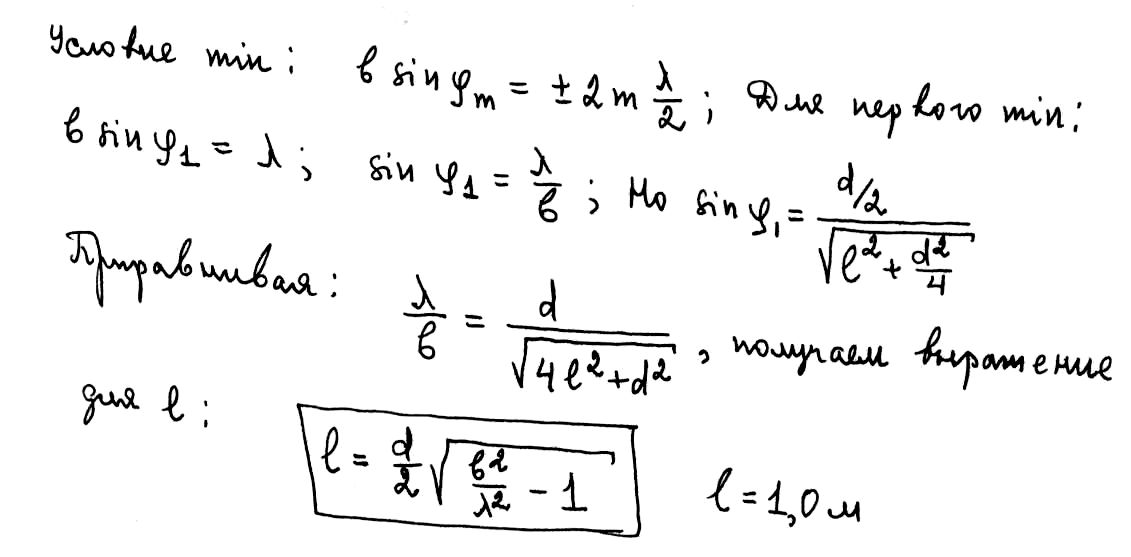 Условие min: b sin φₘ = ± 2m λ/2; Для первого min:
b sin φ₁ = λ; sin φ₁ = λ/b; Но sin φ₁ = (d/2)/√(l² + d²/4)
Приравнивая: λ/b = d/√(4l² + d²), получаем выражение
для l:
l = d/2 √(b²/λ² - 1) l = 1,0 м